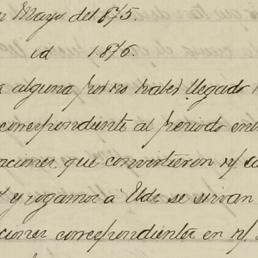 Mayo del 875.
id 1876.
alguna por no haber llegado
correspondiente al periodo
que convirtieron n/
y rogamos à Uds se sirvan
correspondiente en n/.